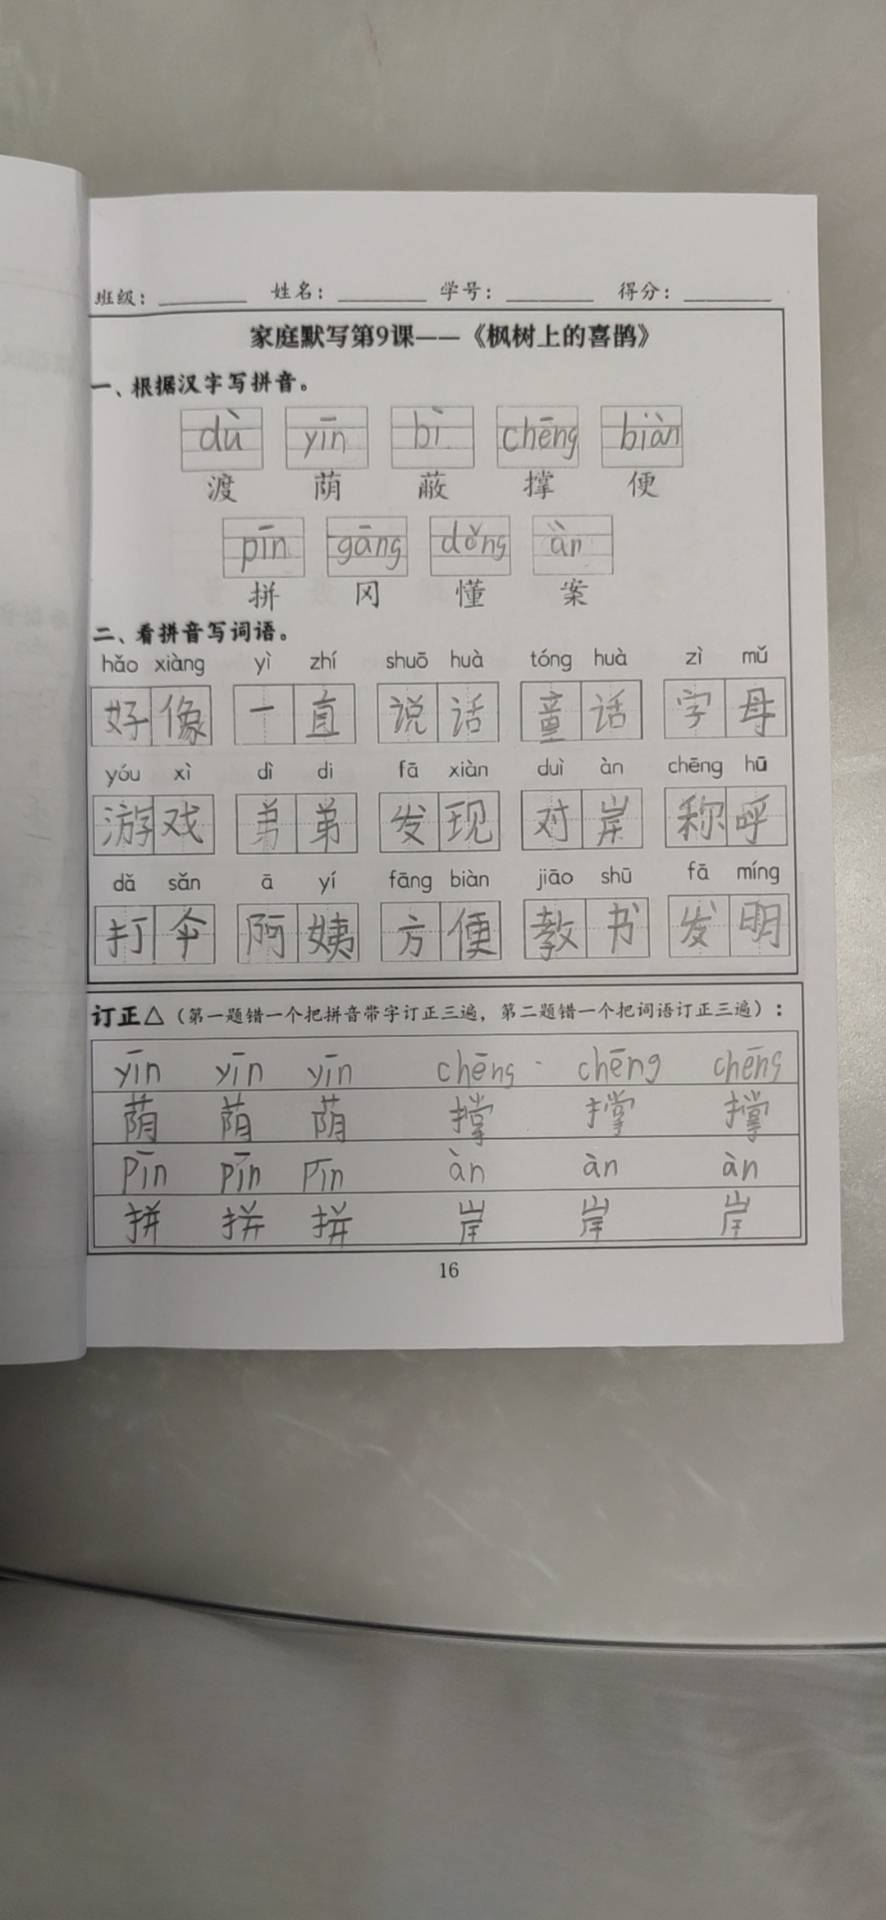 班级： 姓名： 学号： 得分：
家庭默写第9课——《枫树上的喜鹊》
一、根据汉字写拼音。
dù yīn bì chēng biàn
渡 荫 蔽 撑 便
pīn gāng dǒng àn
拼 冈 懂 案
二、看拼音写词语。
hǎo xiàng yì zhí shuō huà tóng huà zì mǔ
好像 一直 说话 童话 字母
yóu xì dì di fā xiàn duì àn chēng hū
游戏 弟弟 发现 对岸 称呼
dǎ sǎn ā yí fāng biàn jiāo shū fā míng
打伞 阿姨 方便 教书 发明
订正△（第一题错一个把拼音带字订正三遍，第二题错一个把词语订正三遍）：
yīn yīn yīn chēng chēng chēng
荫 荫 荫 撑 撑 撑
pīn pīn pīn àn àn àn
拼 拼 拼 岸 岸 岸
16